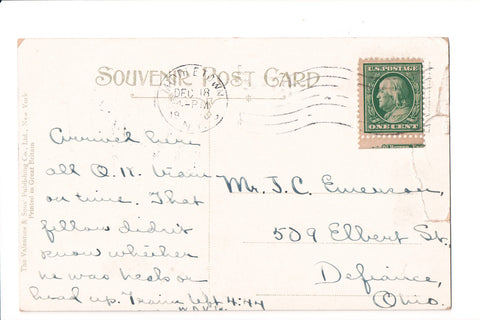 SOUVENIR POST CARD
DEC 18
PM
N.Y.
U.S. POSTAGE
ONE CENT
The Valentine & Sons' Publishing Co., Ltd., New York
Printed in Great Britain
Arrived here
all O.K. train
on time. That
fellow didn't
know whether
he was heels or
head up. Train left 4:44
Mr. J. C. Emerson,
509 Elbert St.,
Defiance,
Ohio.